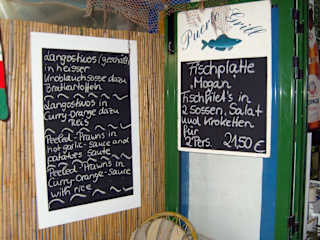 Langostinos (geschält)
in heisser
Knoblauchsosse dazu
Bratkartoffeln
Langostinos in
Curry-Orange dazu
Reis
Peeled-Prawns in
hot garlic-sauce and
patatoes Saute
Peeled-Prawns in
Curry-Orange-Sauce
with rice
Puerto Grill
Fischplatte
"Mogan
Fischfilet's in
2 Sossen, Salat
und Kroketten
für
2 Pers. 21,50 €